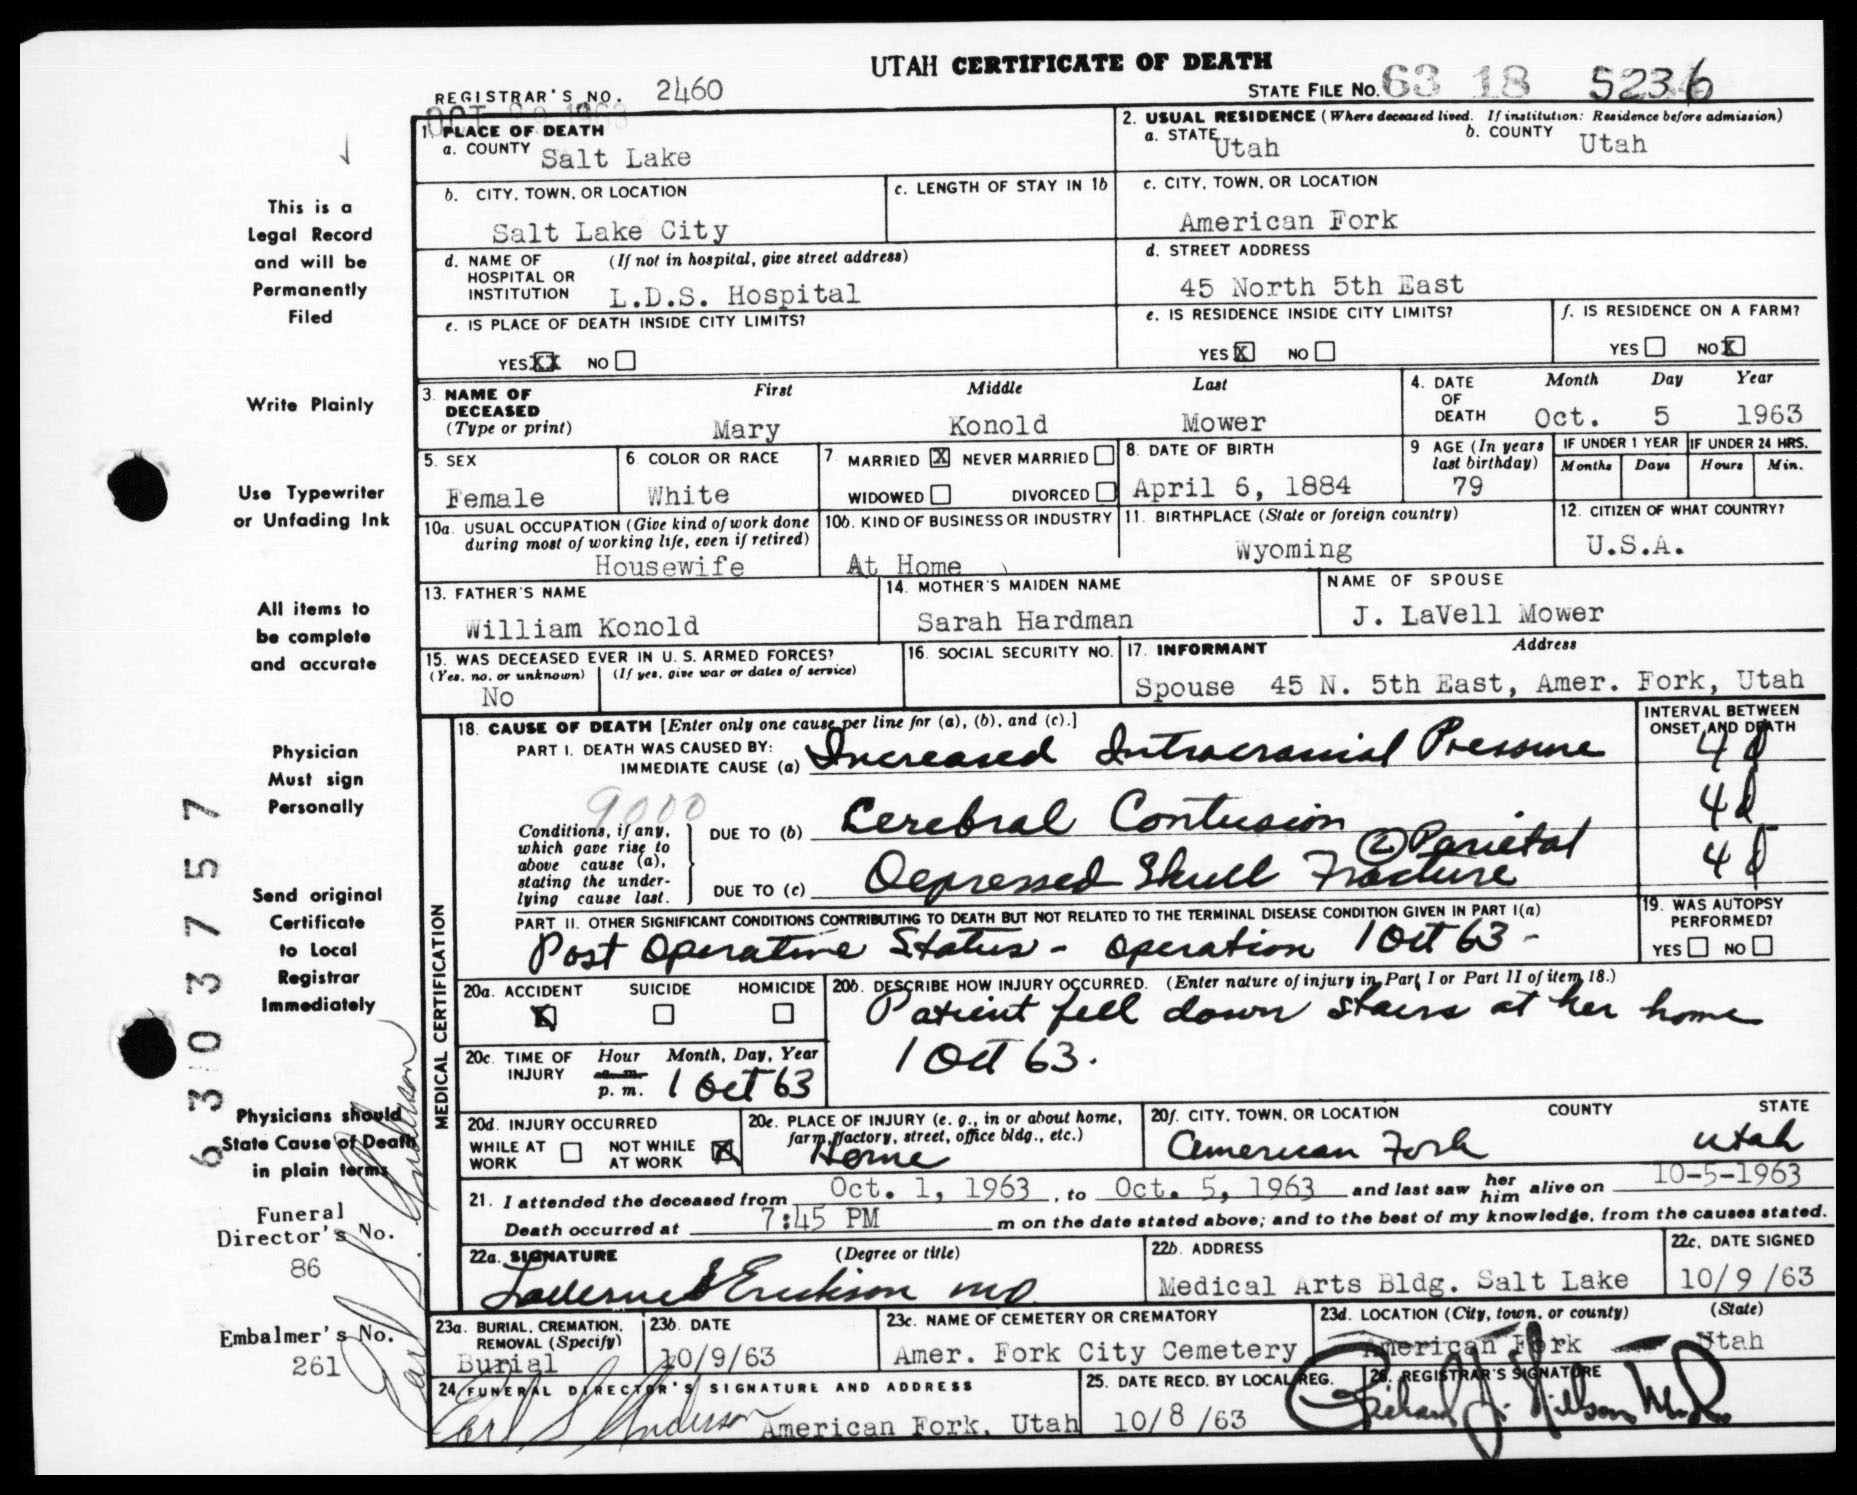 UTAH CERTIFICATE OF DEATH
REGISTRAR'S NO. 2460
STATE FILE NO. 63 18 5236
OCT 29 1963
1. PLACE OF DEATH
a. COUNTY Salt Lake
2. USUAL RESIDENCE (Where deceased lived. If institution: Residence before admission)
a. STATE Utah b. COUNTY Utah
b. CITY, TOWN, OR LOCATION Salt Lake City
c. LENGTH OF STAY IN 1b
c. CITY, TOWN, OR LOCATION American Fork
d. NAME OF HOSPITAL OR INSTITUTION (If not in hospital, give street address) L.D.S. Hospital
d. STREET ADDRESS 45 North 5th East
e. IS PLACE OF DEATH INSIDE CITY LIMITS?
YES XX NO
e. IS RESIDENCE INSIDE CITY LIMITS?
YES X NO
f. IS RESIDENCE ON A FARM?
YES NO X
3. NAME OF DECEASED (Type or print)
First Middle Last
Mary Konold Mower
4. DATE OF DEATH Month Day Year
Oct. 5 1963
5. SEX Female
6. COLOR OR RACE White
7. MARRIED X NEVER MARRIED
WIDOWED DIVORCED
8. DATE OF BIRTH April 6, 1884
9 AGE (In years last birthday) 79
IF UNDER 1 YEAR Months Days
IF UNDER 24 HRS. Hours Min.
10a. USUAL OCCUPATION (Give kind of work done during most of working life, even if retired) Housewife
10b. KIND OF BUSINESS OR INDUSTRY At Home
11. BIRTHPLACE (State or foreign country) Wyoming
12. CITIZEN OF WHAT COUNTRY? U.S.A.
13. FATHER'S NAME William Konold
14. MOTHER'S MAIDEN NAME Sarah Hardman
NAME OF SPOUSE J. LaVell Mower
15. WAS DECEASED EVER IN U. S. ARMED FORCES?
(Yes, no, or unknown) (If yes, give war or dates of service)
No
16. SOCIAL SECURITY NO.
17. INFORMANT Address
Spouse 45 N. 5th East, Amer. Fork, Utah
MEDICAL CERTIFICATION
18. CAUSE OF DEATH [Enter only one cause per line for (a), (b), and (c).]
INTERVAL BETWEEN ONSET AND DEATH
PART I. DEATH WAS CAUSED BY:
IMMEDIATE CAUSE (a) Increased Intracranial Pressure 4 d
9000
Conditions, if any, which gave rise to above cause (a), stating the underlying cause last.
DUE TO (b) Cerebral Contusion 4 d
DUE TO (c) Depressed Skull Fracture (L) Parietal 4 d
PART II. OTHER SIGNIFICANT CONDITIONS CONTRIBUTING TO DEATH BUT NOT RELATED TO THE TERMINAL DISEASE CONDITION GIVEN IN PART I(a)
Post Operative Status - operation 1 Oct 63 -
19. WAS AUTOPSY PERFORMED?
YES NO
20a. ACCIDENT X SUICIDE HOMICIDE
20b. DESCRIBE HOW INJURY OCCURRED. (Enter nature of injury in Part I or Part II of item 18.)
Patient fell down stairs at her home
1 Oct 63.
20c. TIME OF INJURY Hour Month, Day, Year
a. m.
p. m. 1 Oct 63
20d. INJURY OCCURRED
WHILE AT WORK NOT WHILE AT WORK X
20e. PLACE OF INJURY (e. g., in or about home, farm, factory, street, office bldg., etc.)
Home
20f. CITY, TOWN, OR LOCATION COUNTY STATE
American Fork Utah
21. I attended the deceased from Oct. 1, 1963, to Oct. 5, 1963 and last saw her him alive on 10-5-1963
Death occurred at 7:45 PM m on the date stated above; and to the best of my knowledge, from the causes stated.
22a. SIGNATURE (Degree or title)
Laverne S Erickson MD
22b. ADDRESS Medical Arts Bldg. Salt Lake
22c. DATE SIGNED 10/9/63
23a. BURIAL, CREMATION, REMOVAL (Specify) Burial
23b. DATE 10/9/63
23c. NAME OF CEMETERY OR CREMATORY Amer. Fork City Cemetery
23d. LOCATION (City, town, or county) (State)
American Fork Utah
24. FUNERAL DIRECTOR'S SIGNATURE AND ADDRESS
Earl S Anderson American Fork, Utah
25. DATE RECD. BY LOCAL REG. 10/8/63
26. REGISTRAR'S SIGNATURE
This is a
Legal Record
and will be
Permanently
Filed
Write Plainly
Use Typewriter
or Unfading Ink
All items to
be complete
and accurate
Physician
Must sign
Personally
Send original
Certificate
to Local
Registrar
Immediately
Physicians should
State Cause of Death
in plain terms
Funeral
Director's No.
86
Embalmer's No.
261
Earl S. Anderson
6303757